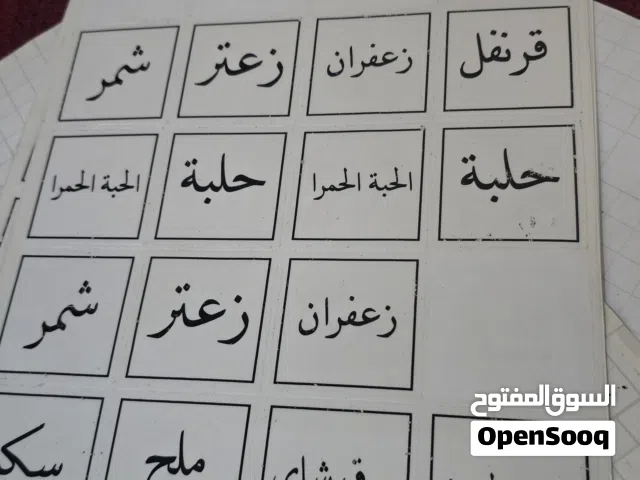 قرنفل زعفران زعتر شمر
حلبة الحبة الحمرا حلبة الحبة الحمرا
زعفران زعتر شمر
ملح
السوق المفتوح
OpenSooq